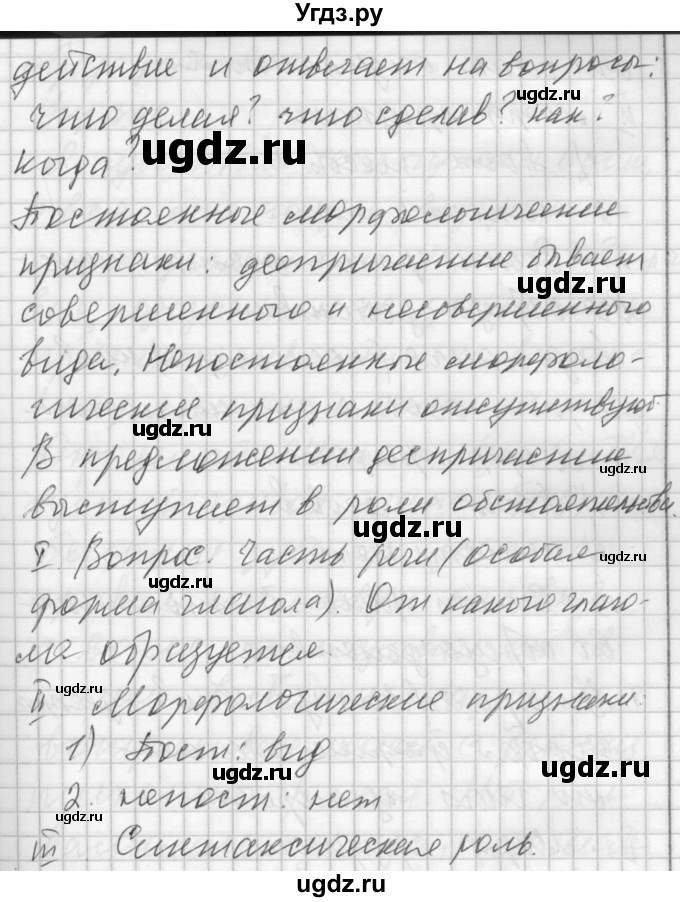 Угдз.ру
действие и отвечает на вопросы:
что делая? что сделав? как?
когда?
ugdz.ru
Постоянные морфологические
признаки: деепричастие бывает
ugdz.ru
совершенного и несовершенного
вида. Непостоянные морфоло-
гические признаки отсутствуют.
ugdz.ru
В предложении деепричастие
ugdz.ru
выступает в роли обстоятельства.
ugdz.ru
I. Вопрос. Часть речи (особая
ugdz.ru
форма глагола). От какого глаго-
ла образуется.
ugdz.ru
II Морфологические признаки:
1) Пост: вид
ugdz.ru
ugdz.ru
2. непост: нет
ugdz.ru
III Синтаксическая роль.
ugdz.ru
ugdz.ru